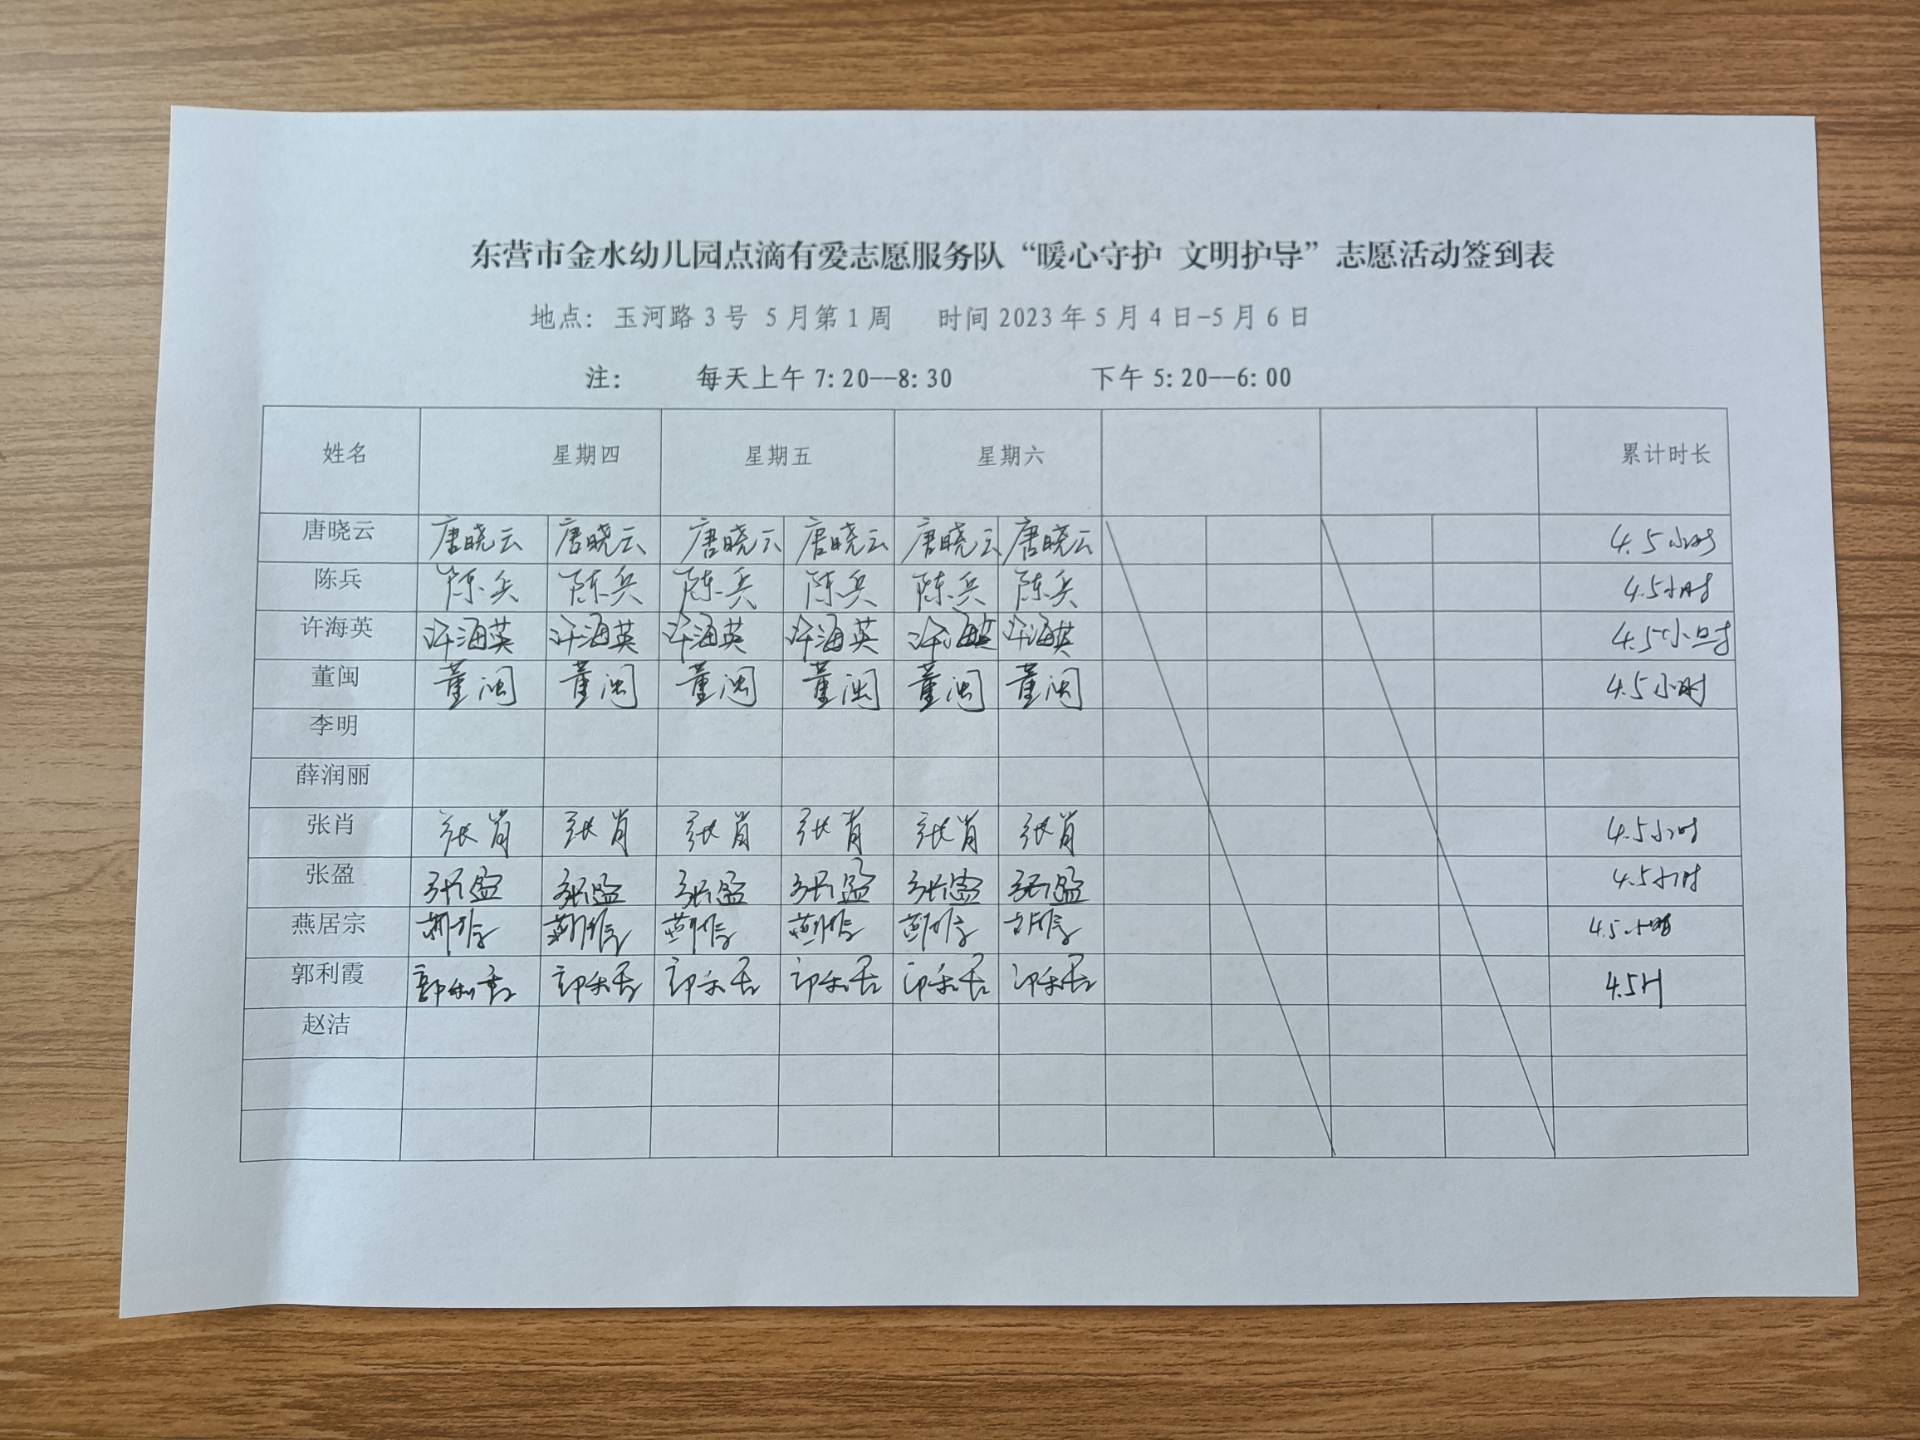 东营市金水幼儿园点滴有爱志愿服务队“暖心守护 文明护导”志愿活动签到表
地点: 玉河路3号 5月第1周 时间2023年5月4日-5月6日
注: 每天上午7:20--8:30 下午5:20--6:00
姓名 星期四 星期五 星期六 累计时长
唐晓云 唐晓云 唐晓云 唐晓云 唐晓云 唐晓云 唐晓云 4.5小时
陈兵 陈兵 陈兵 陈兵 陈兵 陈兵 陈兵 4.5小时
许海英 许海英 许海英 许海英 许海英 许海英 许海英 4.5小时
董闽 董闽 董闽 董闽 董闽 董闽 董闽 4.5小时
李明
薛润丽
张肖 张肖 张肖 张肖 张肖 张肖 张肖 4.5小时
张盈 张盈 张盈 张盈 张盈 张盈 张盈 4.5小时
燕居宗 4.5小时
郭利霞 郭利霞 郭利霞 郭利霞 郭利霞 郭利霞 郭利霞 4.5H
赵洁